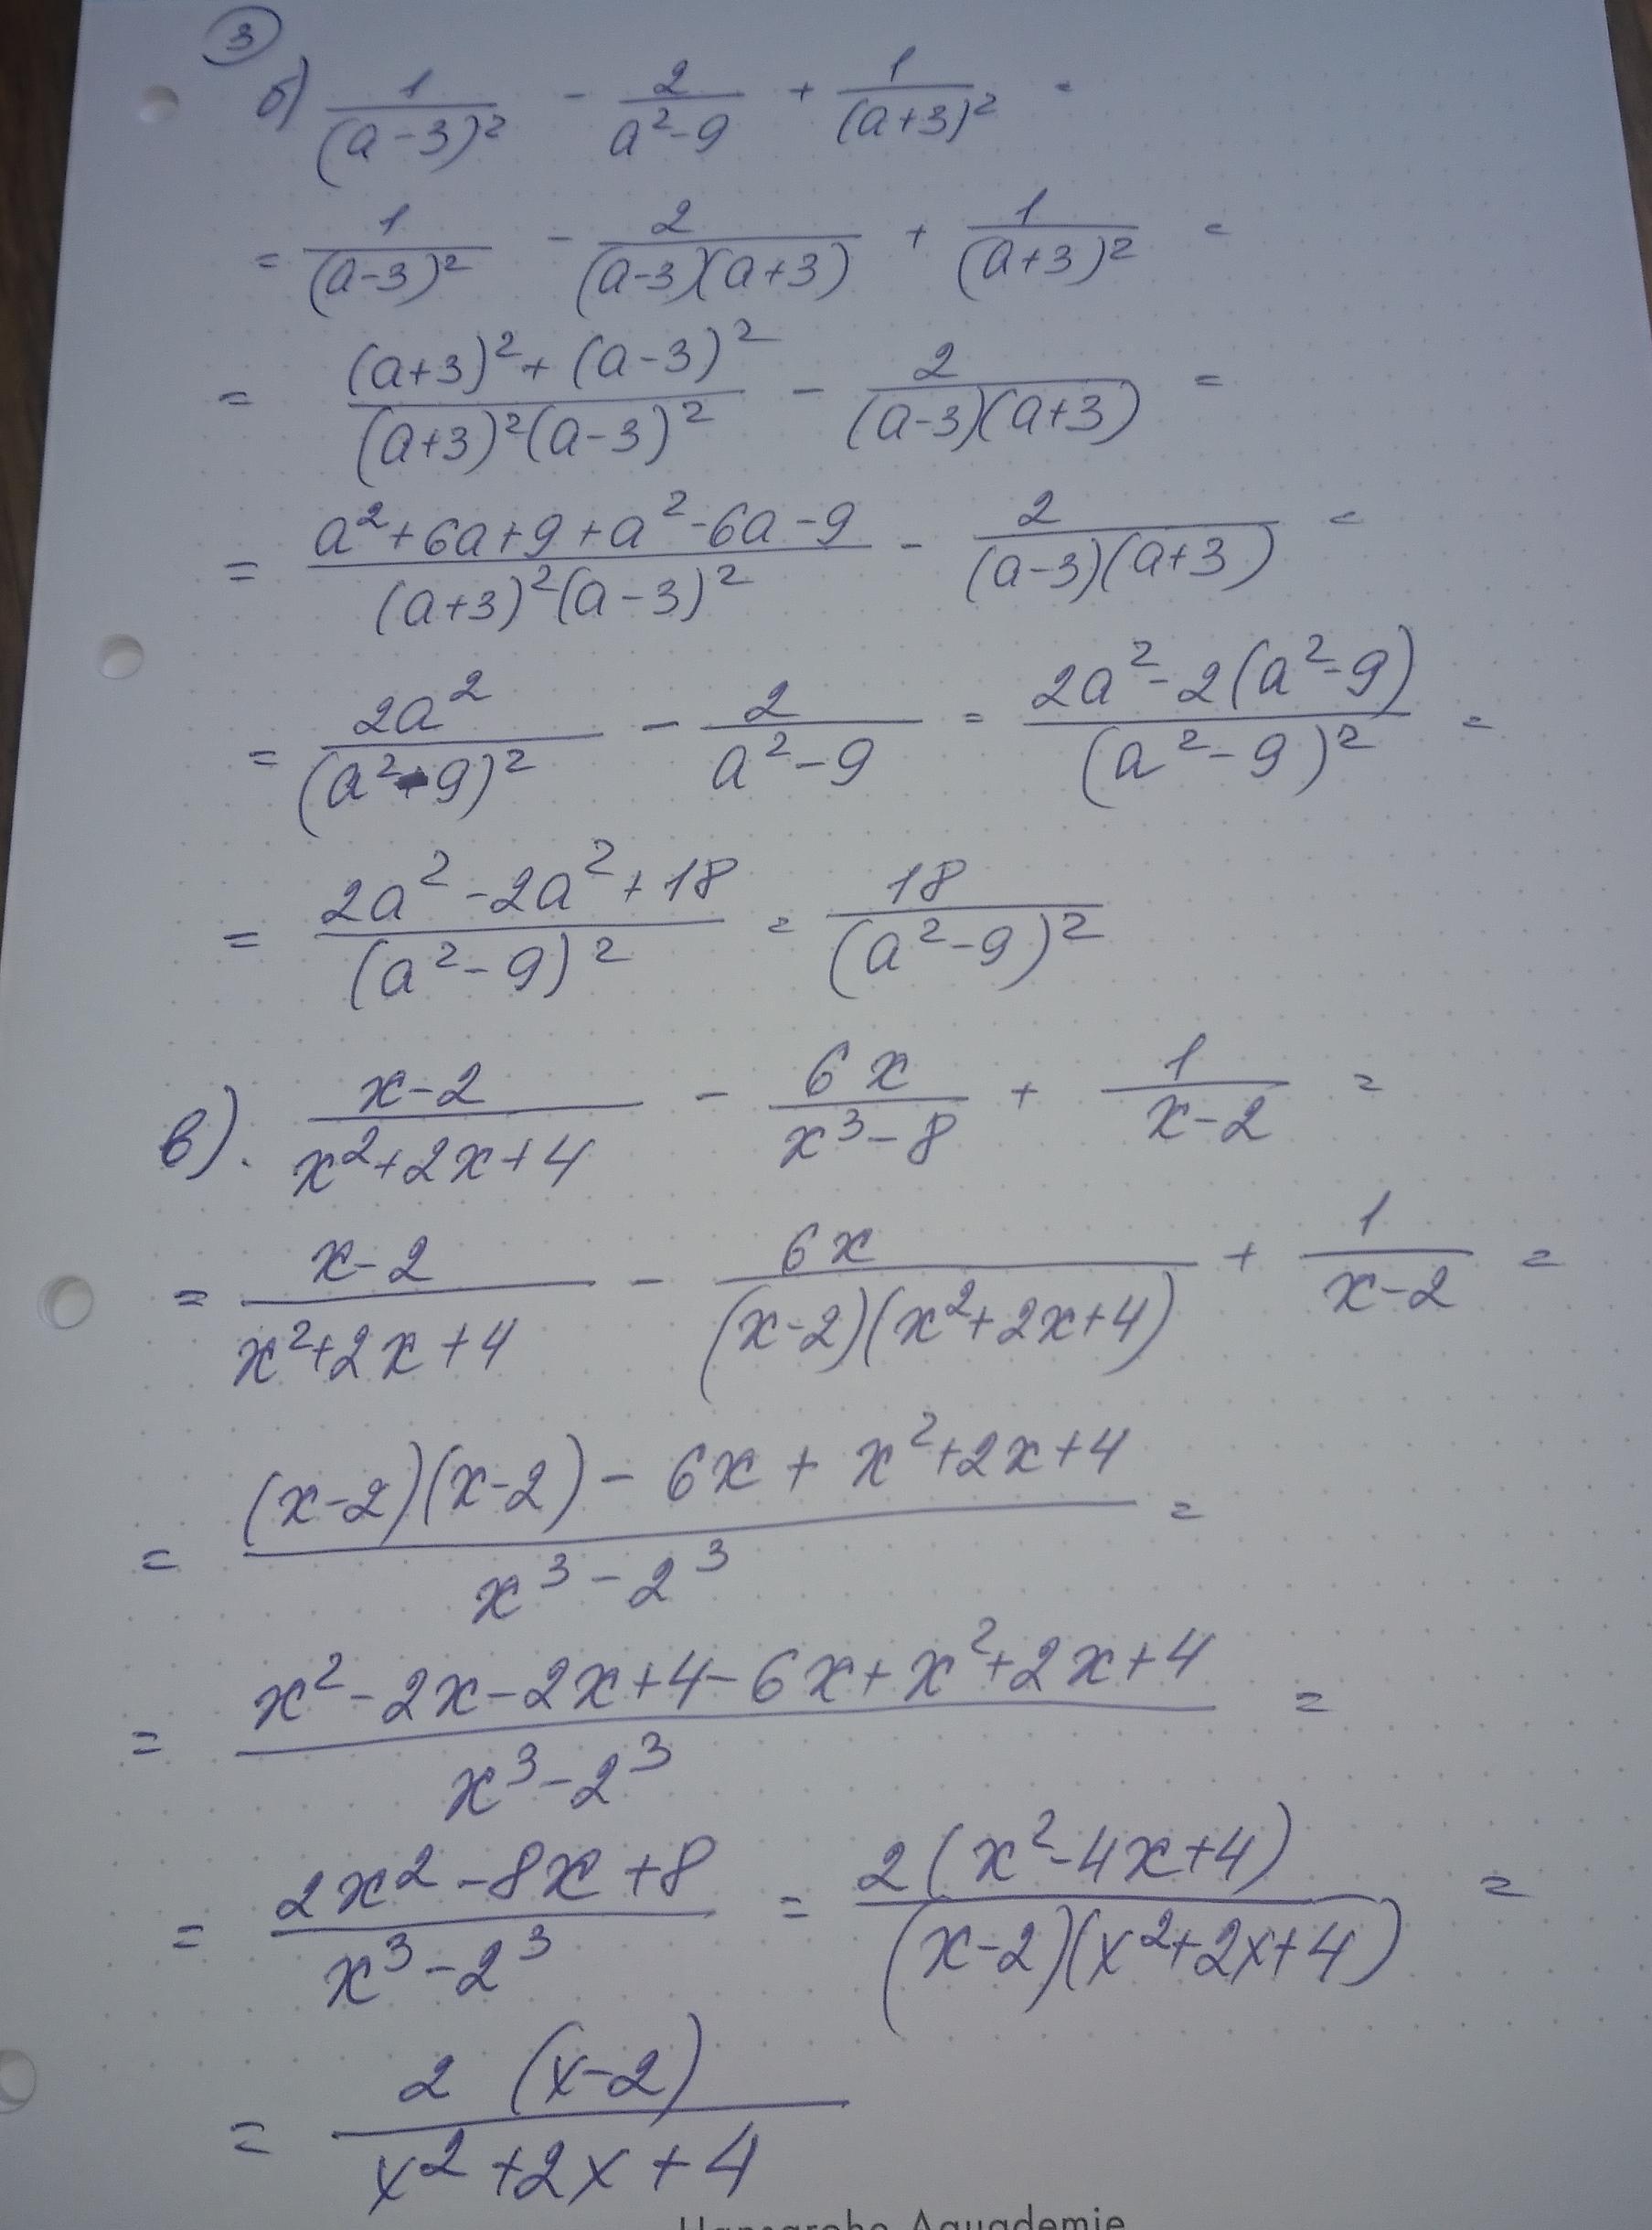 3
б) 1/(a-3)² - 2/(a²-9) + 1/(a+3)² =
= 1/(a-3)² - 2/((a-3)(a+3)) + 1/(a+3)² =
= ((a+3)²+(a-3)²)/((a+3)²(a-3)²) - 2/((a-3)(a+3)) =
= (a²+6a+9+a²-6a-9)/((a+3)²(a-3)²) - 2/((a-3)(a+3)) =
= 2a²/(a²-9)² - 2/(a²-9) = (2a²-2(a²-9))/(a²-9)² =
= (2a²-2a²+18)/(a²-9)² = 18/(a²-9)²
в). (x-2)/(x²+2x+4) - 6x/(x³-8) + 1/(x-2) =
= (x-2)/(x²+2x+4) - 6x/((x-2)(x²+2x+4)) + 1/(x-2) =
= ((x-2)(x-2) - 6x + x²+2x+4)/(x³-2³) =
= (x²-2x-2x+4-6x+x²+2x+4)/(x³-2³) =
= (2x²-8x+8)/(x³-2³) = 2(x²-4x+4)/((x-2)(x²+2x+4)) =
= 2(x-2)/(x²+2x+4)
Hansgrohe Aquademie